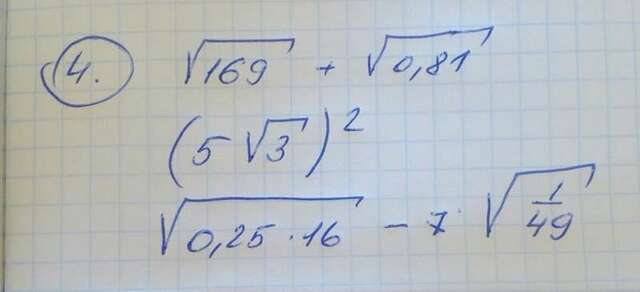 4. √169 + √0,81
(5√3)²
√0,25·16 - 7√1/49